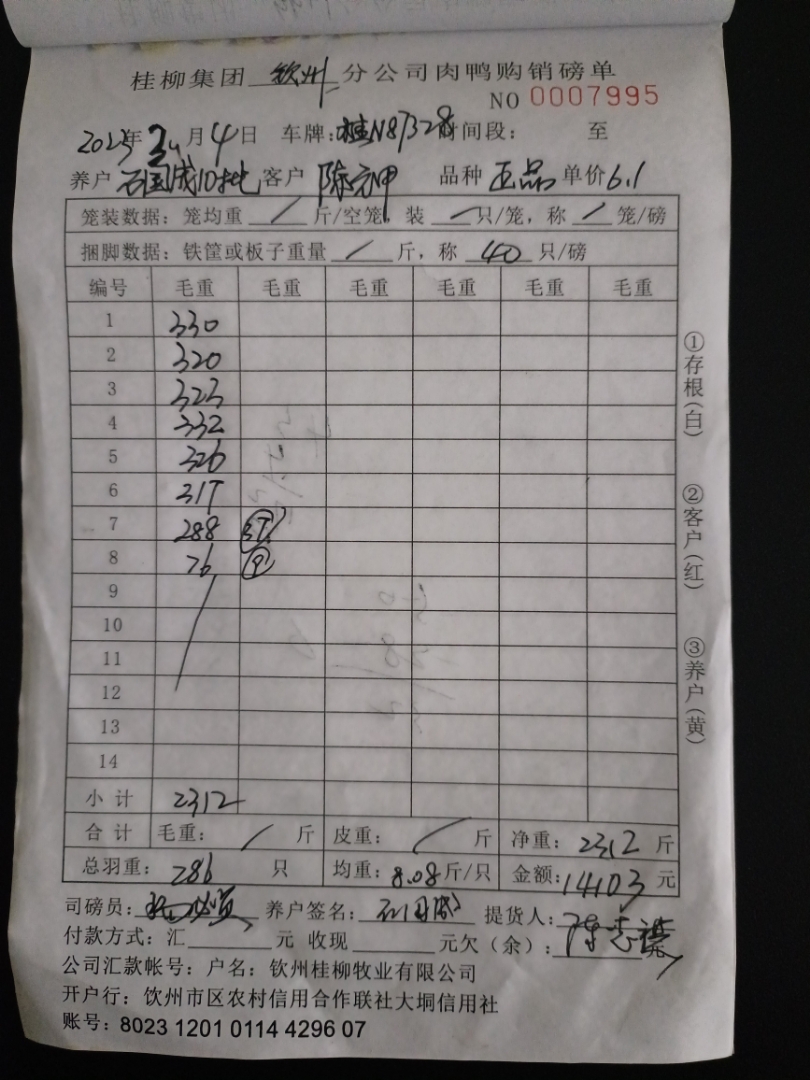 桂柳集团 钦州 分公司肉鸭购销磅单
NO 0007995
2025年 月4日 车牌：桂N87328 时间段： 至
养户 石国成10批 客户 陈元坤 品种 正品 单价6.1
笼装数据：笼均重 / 斤/空笼，装 一 只/笼，称 / 笼/磅
捆脚数据：铁筐或板子重量 / 斤，称 40 只/磅
编号 毛重 毛重 毛重 毛重 毛重 毛重
1 330
2 320
3 323
4 332
5 326
6 317
7 288 37
8 76 9
9
10
11
12
13
14
小计 2312
合计 毛重： / 斤 皮重： / 斤 净重：2312 斤
总羽重：286 只 均重：8.08斤/只 金额：14103元
司磅员： 养户签名：石国成 提货人：陈志
付款方式：汇 元 收现 元欠（余）：
公司汇款帐号：户名：钦州桂柳牧业有限公司
开户行：钦州市区农村信用合作联社大垌信用社
账号：8023 1201 0114 4296 07
①存根（白）
②客户（红）
③养户（黄）